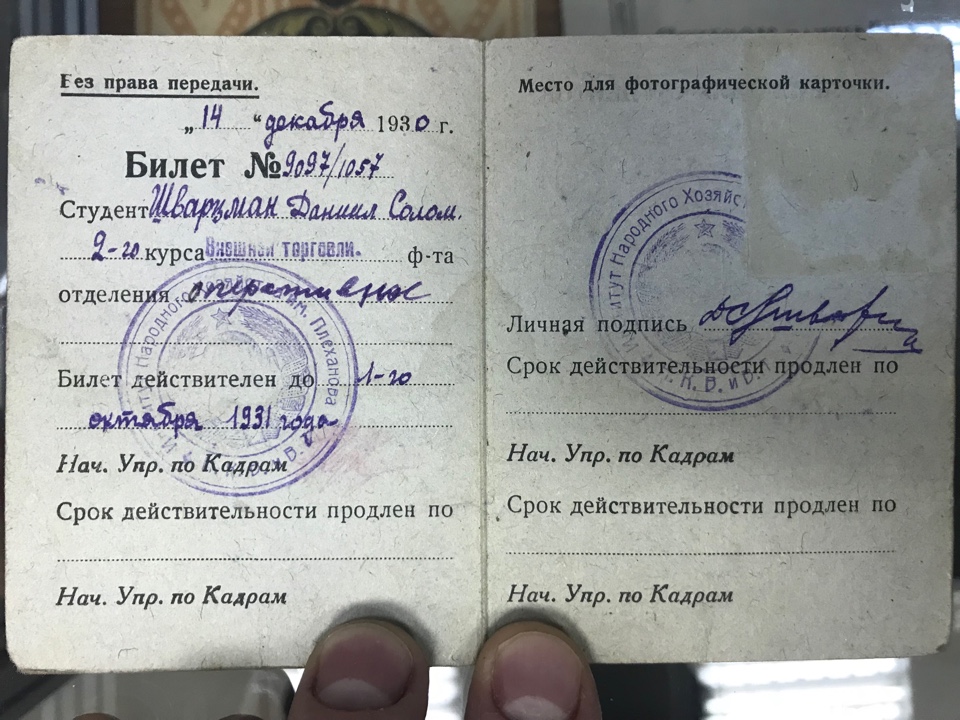 Без права передачи.
„14“ декабря 1930 г.
Билет № 9097/1057
Студент Шварцман Даниил Солом.
2-го курса Внешней торговли. ф-та
отделения оперативное
Билет действителен до 1-го
октября 1931 года
Нач. Упр. по Кадрам
Срок действительности продлен по
Нач. Упр. по Кадрам
Народного Хозяйства им. Плеханова
Место для фотографической карточки.
Институт Народного Хозяйств
Личная подпись
Срок действительности продлен по
Нач. Упр. по Кадрам
Срок действительности продлен по
Нач. Упр. по Кадрам